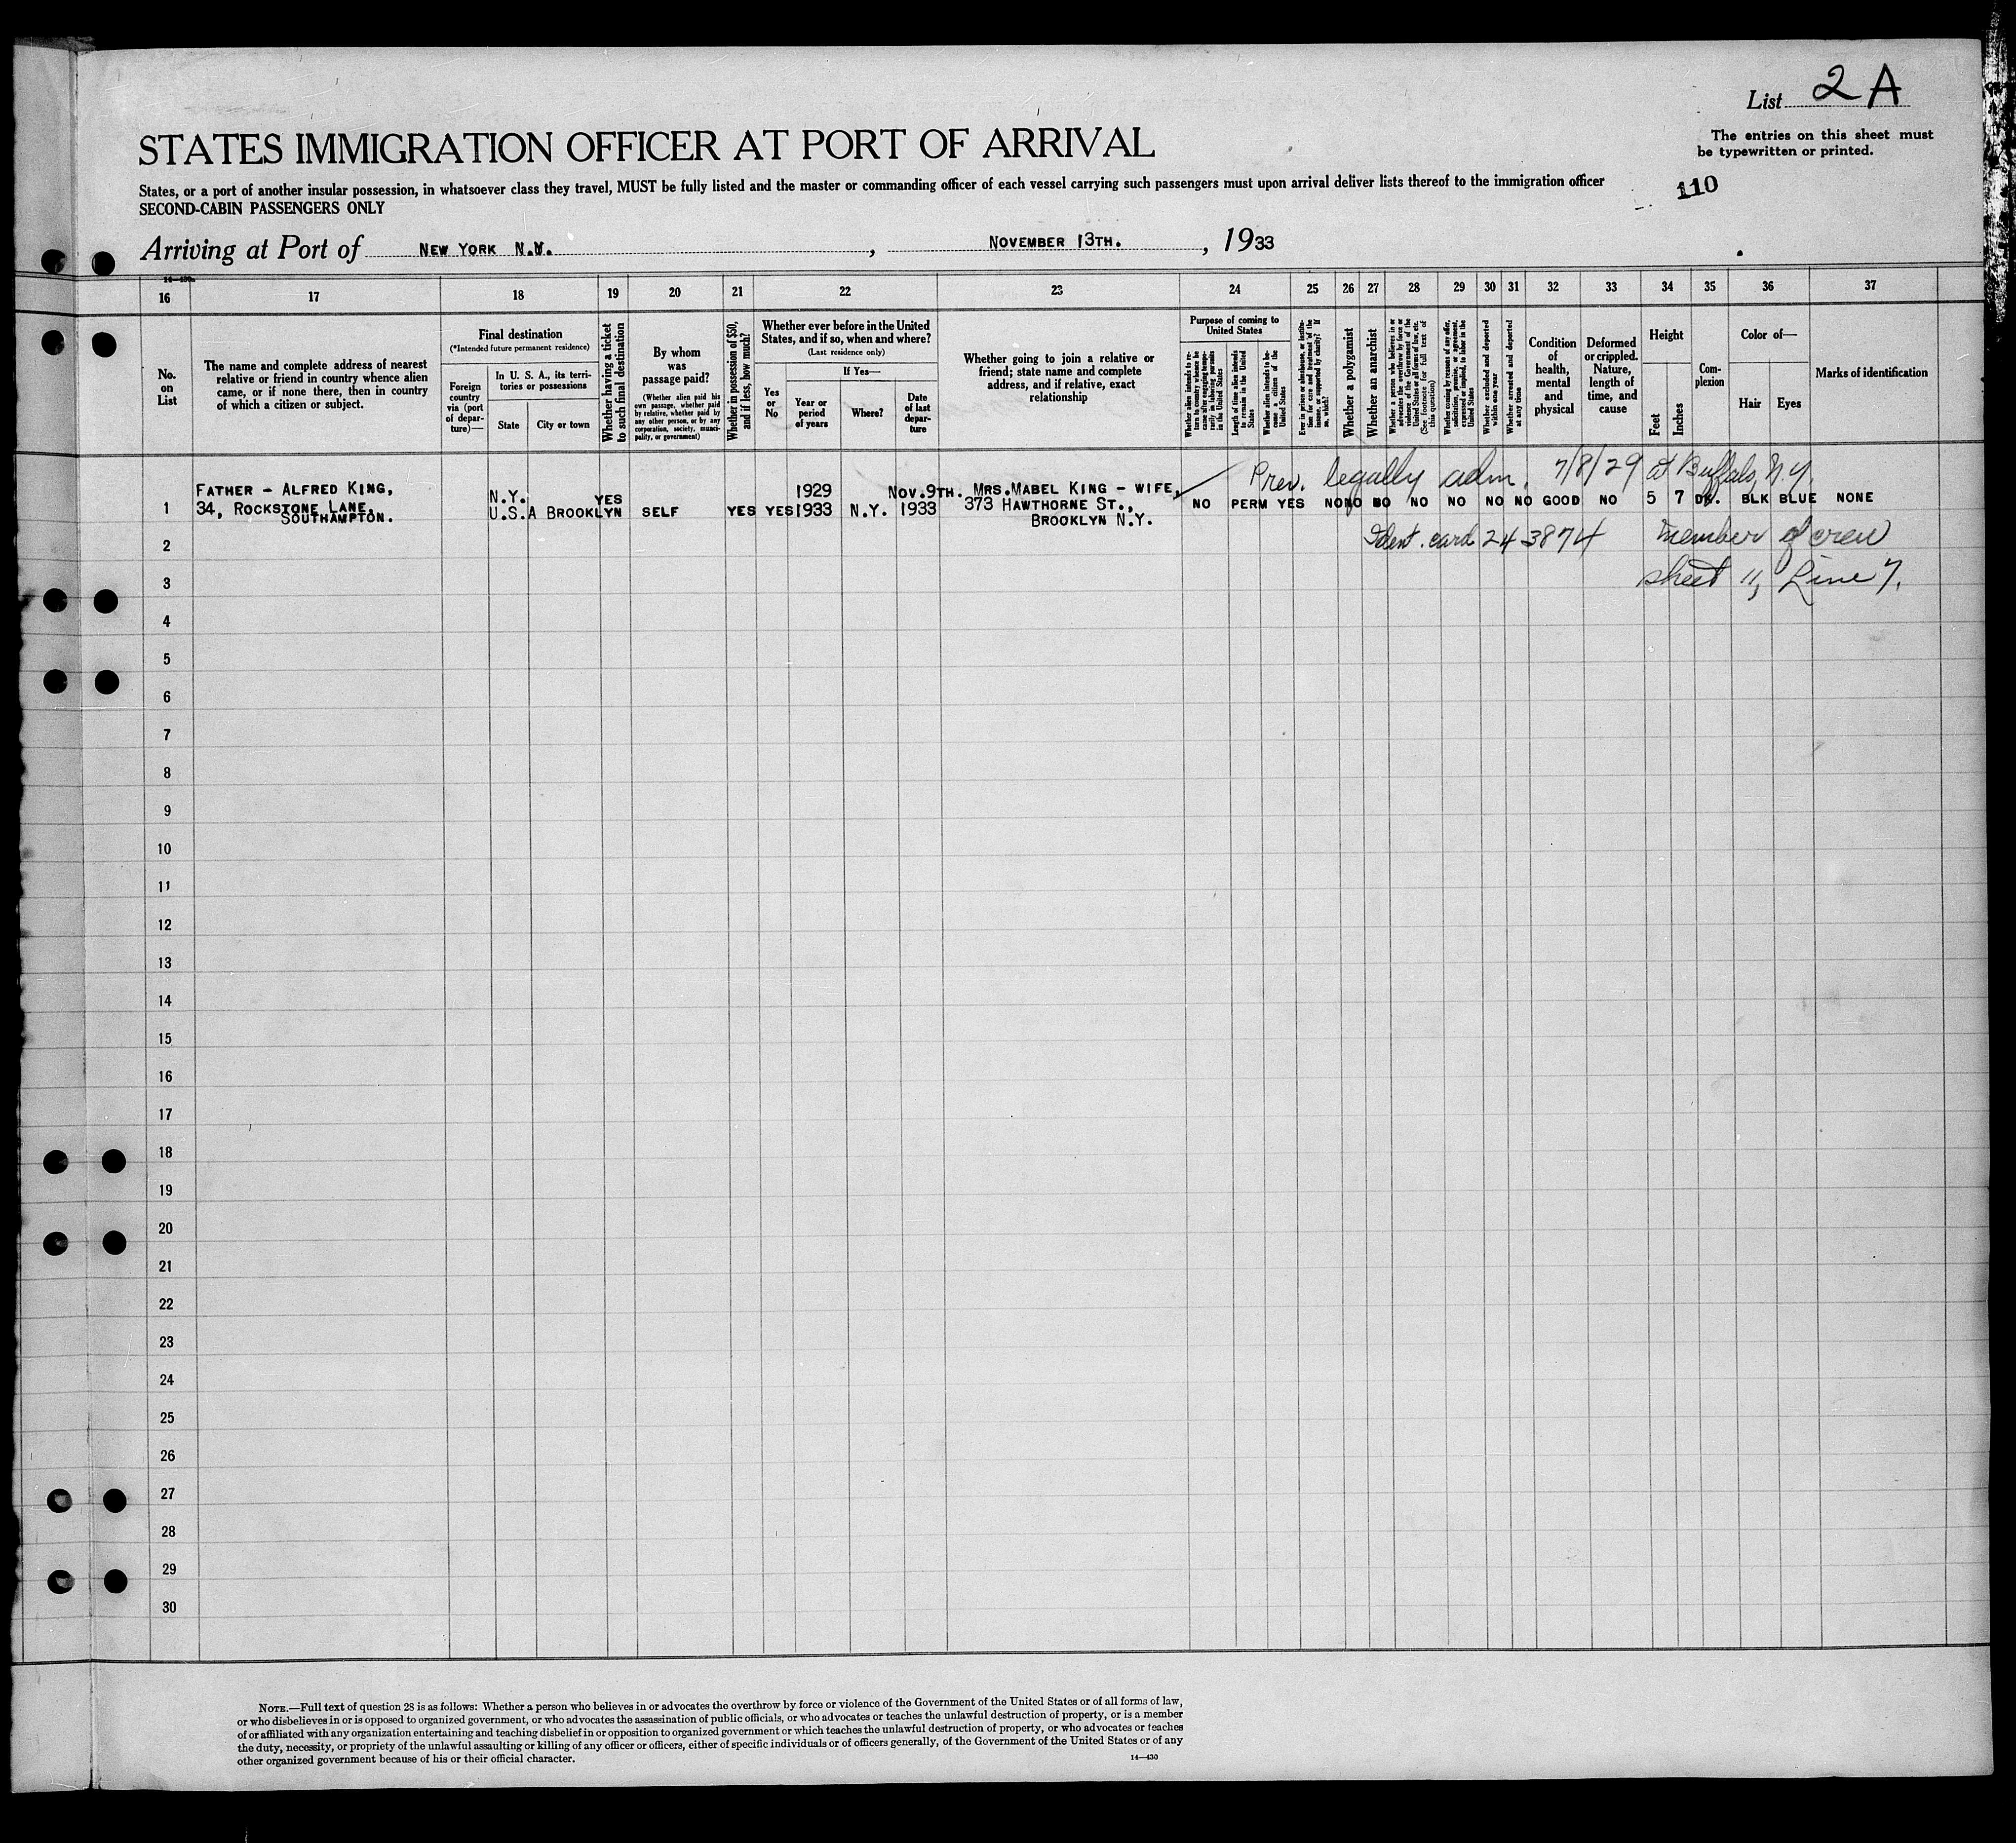 List 2 A
STATES IMMIGRATION OFFICER AT PORT OF ARRIVAL
The entries on this sheet must
be typewritten or printed.
States, or a port of another insular possession, in whatsoever class they travel, MUST be fully listed and the master or commanding officer of each vessel carrying such passengers must upon arrival deliver lists thereof to the immigration officer
SECOND-CABIN PASSENGERS ONLY
110
Arriving at Port of NEW YORK N.Y. , NOVEMBER 13TH. , 1933
16 17 18 19 20 21 22 23 24 25 26 27 28 29 30 31 32 33 34 35 36 37
No.
on
List
The name and complete address of nearest
relative or friend in country whence alien
came, or if none there, then in country
of which a citizen or subject.
Final destination
(*Intended future permanent residence)
Foreign
country
via (port
of depar-
ture)—
In U. S. A., its terri-
tories or possessions
State
City or town
Whether having a ticket
to such final destination
By whom
was
passage paid?
(Whether alien paid his
own passage, whether paid
by relative, whether paid by
any other person, or by any
corporation, society, munici-
pality, or government)
Whether in possession of $50,
and if less, how much?
Whether ever before in the United
States, and if so, when and where?
(Last residence only)
Yes
or
No
If Yes—
Year or
period
of years
Where?
Date
of last
depar-
ture
Whether going to join a relative or
friend; state name and complete
address, and if relative, exact
relationship
Purpose of coming to
United States
Whether alien intends to re-
turn to country whence he
came after engaging tempo-
rarily in laboring pursuits
in the United States
Length of time alien intends
to remain in the United
States
Whether alien intends to be-
come a citizen of the
United States
Ever in prison or almshouse, or institu-
tion for care and treatment of the
insane, or supported by charity? If
so, which?
Whether a polygamist
Whether an anarchist
Whether a person who believes in or
advocates the overthrow by force or
violence of the Government of the
United States or all forms of law, etc.
(See footnote for full text of
this question)
Whether coming by reasons of any offer,
solicitation, promise, or agreement,
expressed or implied, to labor in the
United States
Whether excluded and deported
within one year
Whether arrested and deported
at any time
Condition
of
health,
mental
and
physical
Deformed
or crippled.
Nature,
length of
time, and
cause
Height
Feet
Inches
Com-
plexion
Color of—
Hair
Eyes
Marks of identification
Prev. legally adm. 7/8/29 at Buffalo, N.Y.
1 FATHER – ALFRED KING,
34, ROCKSTONE LANE,
SOUTHAMPTON.
N.Y.
U.S.A BROOKLYN YES SELF YES YES 1929
1933 N.Y. NOV.9TH.
1933 MRS.MABEL KING – WIFE,
373 HAWTHORNE ST.,
BROOKLYN N.Y.
NO PERM YES NO NO NO NO NO NO NO GOOD NO 5 7 DK. BLK BLUE NONE
2 Ident. card 243874 member of crew
3 sheet 11, Line 7.
4
5
6
7
8
9
10
11
12
13
14
15
16
17
18
19
20
21
22
23
24
25
26
27
28
29
30
NOTE.—Full text of question 28 is as follows: Whether a person who believes in or advocates the overthrow by force or violence of the Government of the United States or of all forms of law,
or who disbelieves in or is opposed to organized government, or who advocates the assassination of public officials, or who advocates or teaches the unlawful destruction of property, or is a member
of or affiliated with any organization entertaining and teaching disbelief in or opposition to organized government or which teaches the unlawful destruction of property, or who advocates or teaches
the duty, necessity, or propriety of the unlawful assaulting or killing of any officer or officers, either of specific individuals or of officers generally, of the Government of the United States or of any
other organized government because of his or their official character.
14—430